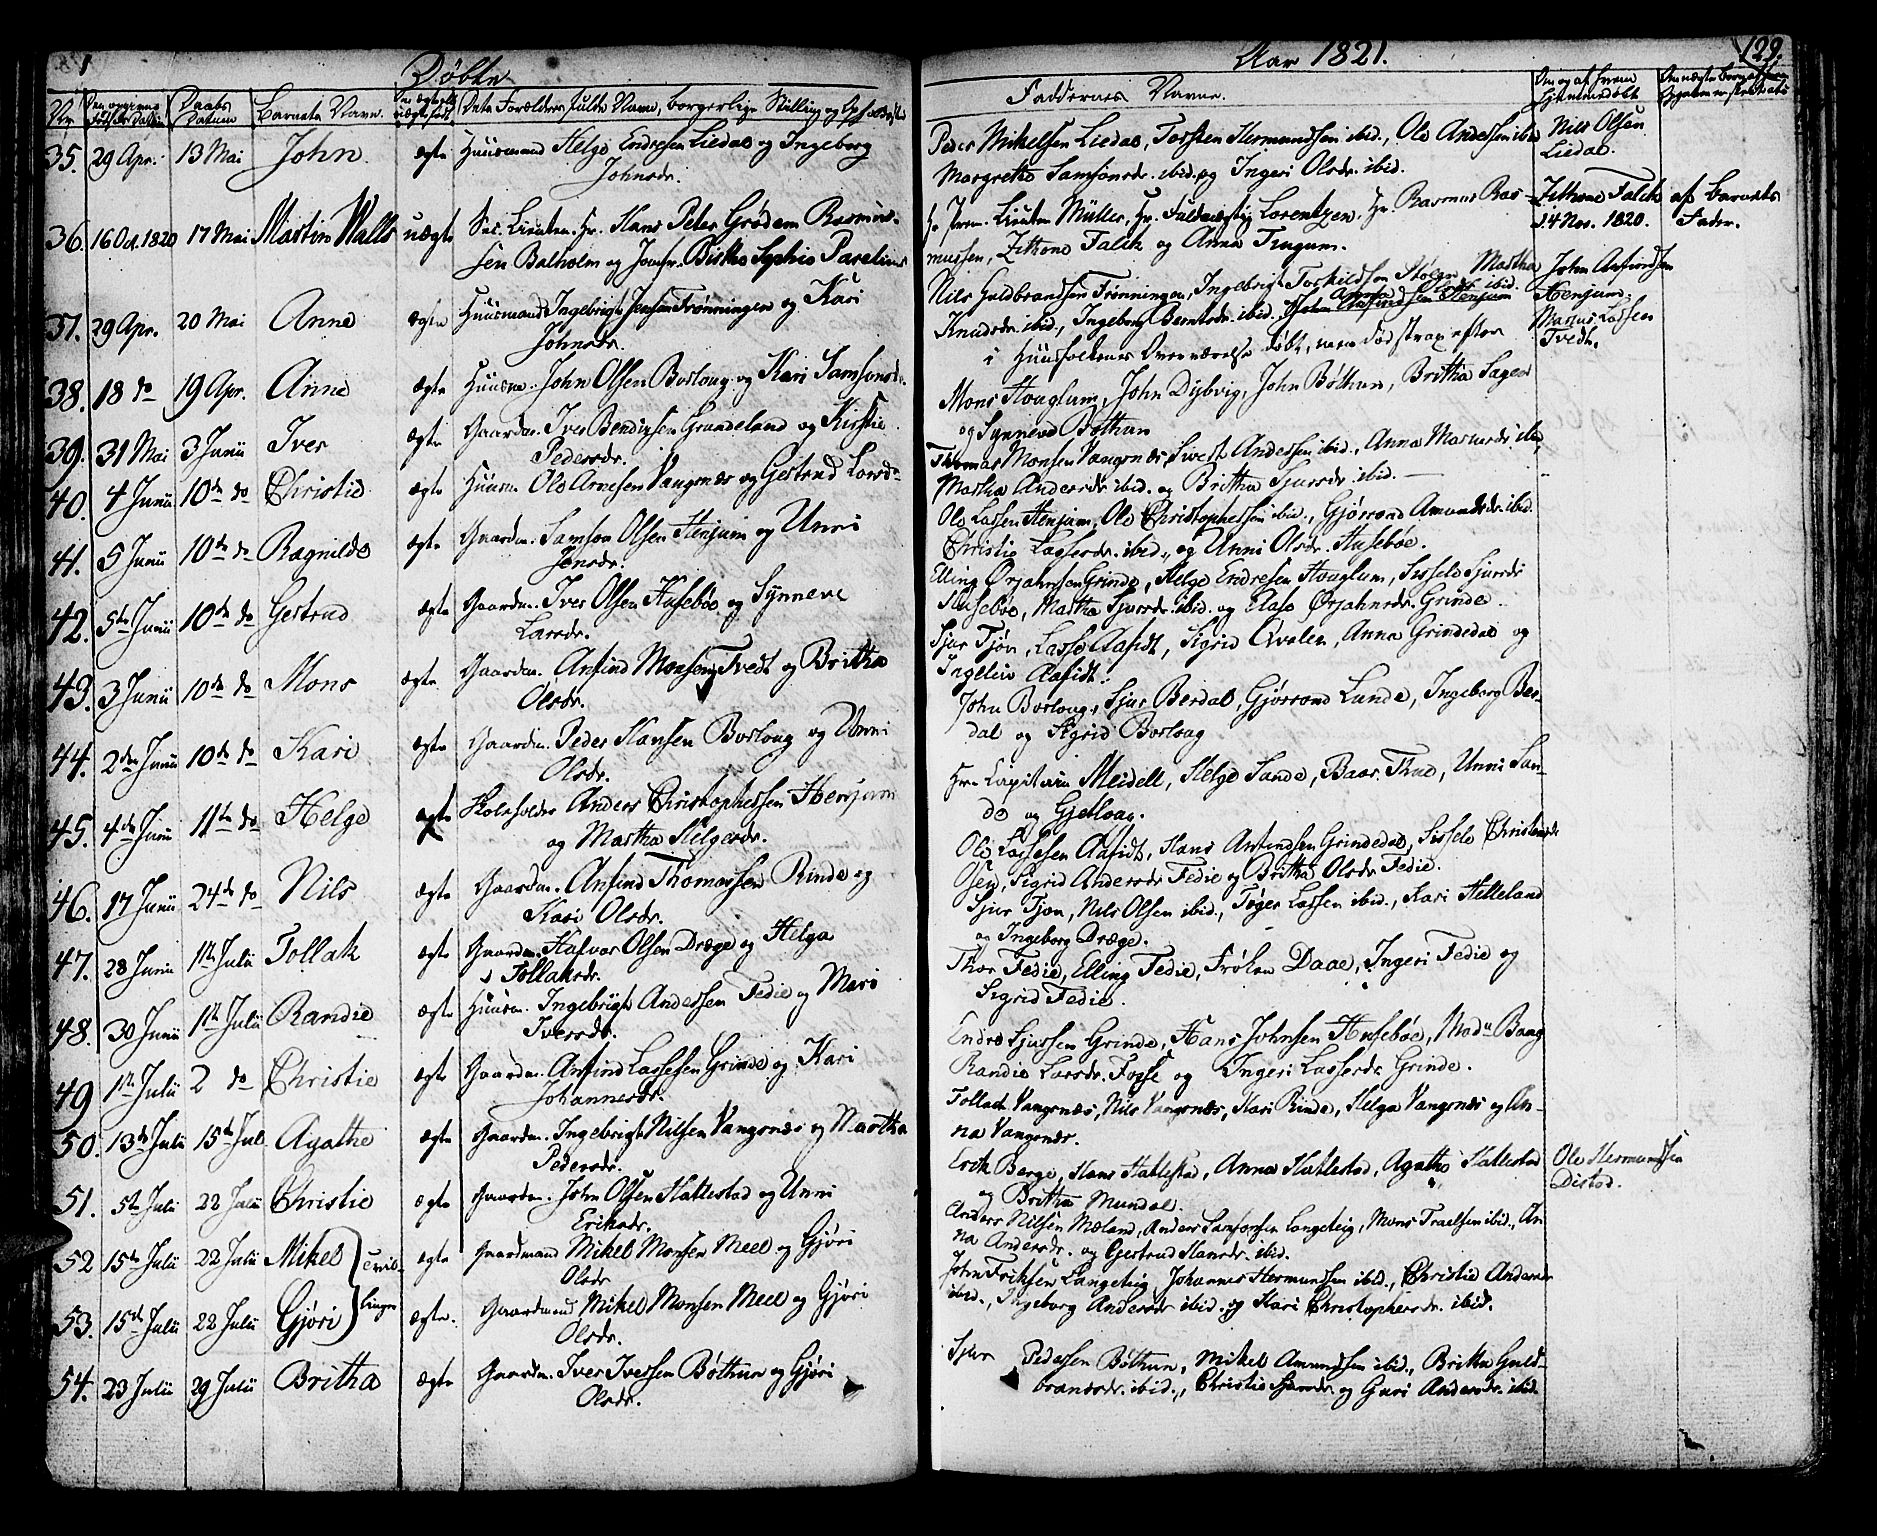 Døbte
Aar 1821.
129.
Nr
Daabs Datum
Barnets Navn.
Faddernes Navne.
35. 29 Apr. 13 Mai John ægte Huusmand Helge Endresen Liedal og Ingeborg
Johnsdr.
Peder Mikelsen Liedal, Torsten Hermundsen ibid., Ole Andersen ibid
Margrethe Samsonsdr. ibid. og Ingeri Olsdr. ibid.
Nils Olsen
Liedal.
36. 16 Oct. 1820 17 Mai Martin Walls uægte Sec. Lieuten. Hr. Hans Peter Grødem Rasmus-
sen Balholm og Jomfr. Birthe Sophie
Hr. Prem. Lieuten Müller, Hr. Lorentzen. Hr. Rasmus Ras-
mussen, Falck og Anna
Falck
14 Nov. 1820.
af Barnets
Fader.
37. 29 Apr. 20 Mai Anne ægte Huusmand Ingebrigt Jensen Frønningen og Kari
Johnsdr.
Nils Guldbrandsen Frønningen, Ingebrigt Torkildsen Stølen, Martha
Knudsdr. ibid., Ingeborg Berntsdr. ibid.
i Huusfolkenes Overværelse døbt, men død strax efter
John Anfindsen
Henjum.
Marius Lassen
Tvedt.
38. 18 do 19 Apr. Anne ægte Huusm. John Olsen Borlaug og Kari Samsonsdr.
Mons Houglum, John Dybvig, John Bøthun, Britha
og Synneve Bøthun
39. 31 Mai 3 Junii Iver ægte Gaardm. Iver Bendixen Grundeland og Kirstie
Pedersdr.
40. 4 Junii 10de do Christie ægte Huusm Ole Arnesen Vangsnæs og Gertrud Larsdr
Thomas Monsen Vangsnæs, Andersen ibid., Anna ibid,
Martha Andersdr. ibid. og Britha Sjursdr. ibid.
41. 5 Junii 10de do Ragnilde ægte Gaardm. Samson Olsen Henjum og Unni
Jensdr.
Ole Lassen Henjum, Ole Christophersen ibid., Gjørrond Amundsdr. ibid.
Christie Lassesdr. ibid., og Unni Olsdr. Husebøe.
42. 5te Junii 10de do Gertrud ægte Gaardm. Iver Olsen Husebøe og Synneve
Larsdr.
Elling Ørjahnsen Grinde, Helge Endresen Houglum, Sissele Sjursdr
Husebøe, Martha Sjursdr. ibid. og Elase Ørjahnsdr. Grinde.
43. 3 Junii 10de do Mons ægte Gaardm. Anfind Monsen Tvedt og Britha
Olsdr.
Sjur Tjøn, Lasse Aafedt, Sigrid Qvalen, Anna Grindedal og
Ingeleiv Aafedt.
44. 2den Junii 10de do Kari ægte Gaardm. Peder Hansen Borlaug og Unni
Olsdr.
John Borlaug, Sjur Berdal, Gjørrond Lunde, Ingeborg Ber-
dal og Sigrid Borlaug
45. 4de Junii 11te do Helge ægte Skoleholder Anders Christophersen Henjum
og Martha Helgesdr.
Hr. Capitain Meidell, Helge Sande, Baar Thue, Unni San-
de og Gjetlaug.
46. 17 Junii 24de do Nils ægte Gaardm. Anfind Thomassen Rinde og
Kari Olsdr.
Ole Lassesen Aafedt, Hans Anfindsen Grindedal, Sissele Christensdr
Osen, Sigrid Andersdr Fedie og Britha Olsdr. Fedie.
47. 28 Junii 1ste Julii Tollak ægte Gaardm. Halvor Olsen Dræge og Helga
Tollaksdr.
Sjur Tjøn, Nils Olsen ibid., Tøger Lassen ibid., Kari Helleland
og Ingeborg Dræge.
48. 30 Junii 1ste Julii Randie ægte Huusm. Ingebrigt Andersen Fedie og Mari
Iversdr.
Thor Fedie, Elling Fedie, Frøken Daae, Ingeri Fedie og
Sigrid Fedie.
49 1ste Julii 2 do Christie ægte Gaardm. Anfind Lassesen Grinde og Kari
Johannesdr.
Endre Sjursen Grinde, Hans Johnsen Husebøe, Madm Bang
Randie Larsdr. Fosse og Ingeri Lassesdr Grinde.
50. 13de Julii 15de Jul Agathe ægte Gaardm. Ingebrigt Nilsen Vangsnæs og Martha
Pedersdr.
Tollack Vangsnæs, Nils Vangsnæs, Kari Rinde, Helga Vangsnæs og An-
na Vangsnæs.
51. 5te Julii 22 Julii Christie ægte Gaardm. John Olsen Hatlestad og Unni
Eriksdr.
Erik Berge, Hans Hatlestad, Anna Hatlestad, Agathe Hatlestad
og Britha Mundal.
Ole Hermundsen
Distad.
52 15de Julii 22 Julii Mikel } Tvil- ægte Gaardmand Mikel Monsen Meel og Gjøri
Olsdr
Anders Nilsen Mæland, Anders Samsonsen Langeteig, Mons Truelsen ibid., An
na Andersdr. og Gjertrud Hansdr. ibid.
53. 15de Julii 22 Julii Gjøri } linger ægte. Gaardmand Mikel Monsen Meel og Gjøri
Olsdr.
John Eriksen Langeteig, Johannes Hermundsen ibid., Christie Andersdr
ibid., Ingeborg Andersdr ibid. og Kari Christophersdr. ibid.
54. 23 Julii 29 Julii Britha ægte Gaardm. Iver Iversen Bøthun og Gjøri
Olsdr.
Sjur Pedersen Bøthun, Mikel Amundsen ibid., Britha Guld-
brandsdr. ibid., Christie Sjursdr. og Guri Andersdr. ibid.